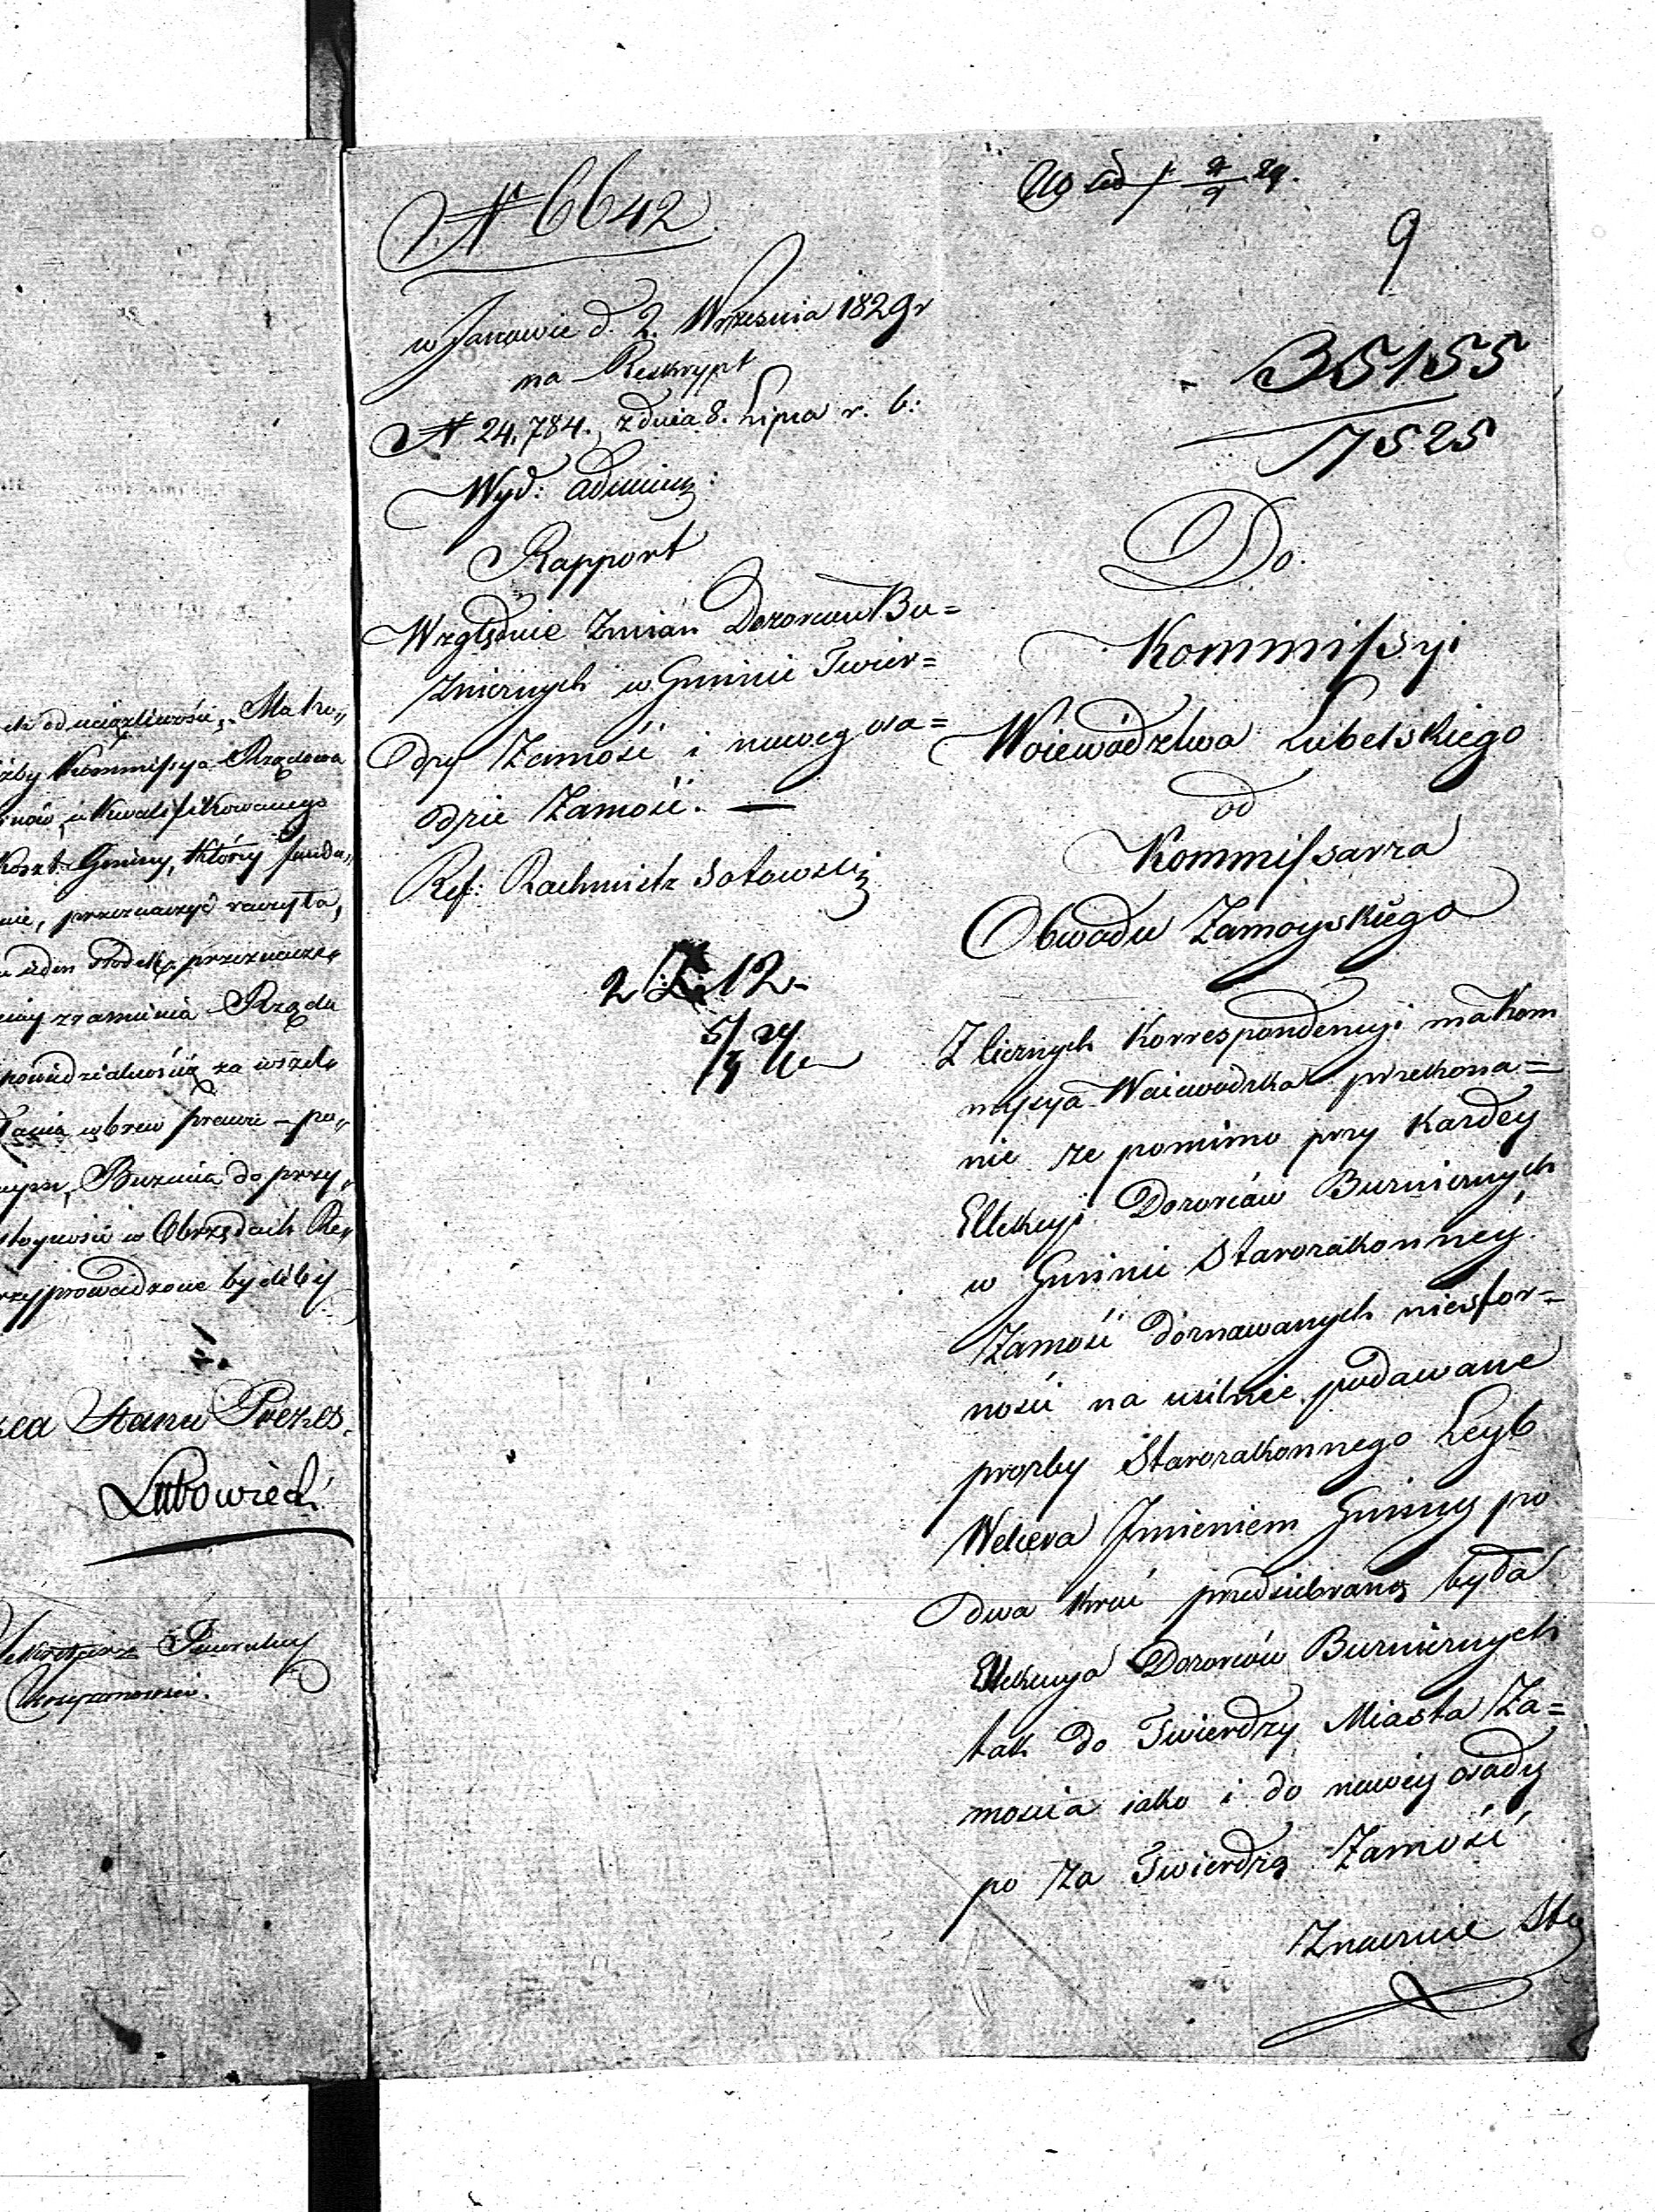 ch od uciążliwości. Ma ho„
żby Kommissya Rządowa
inów, u kwalifikowanego
koszt Gminy, który fundu„
nie, przeznaczyć raczyła,
przeznacze„
Rządu
powiedzialnością za wszel„
wbrew prawu – po„
Buzenia do przy„
stoyności w Obrzędach Re„
rzyprowadzone bydź by
Stanu Prezes.
Lubowiecki
Sekretarz Jeneralny
N 6642.
w Janowie d. 2. Września 1829 r
na Reskrypt
N 24,784., z dnia 8. Lipca r. b:
Wyd: admini:
Rapport
Względnie Zmian Dozorców Bu=
żniczych w Gminie Twier=
dzy Zamość i nowey osa=
dzie Zamość. —
Ref: Rachmistz Sotowski
2 12.
9
35155
7525
Do
Kommissyi
Woiewództwa Lubelskiego
od
Kommissarza
Obwodu Zamoyskiego
Z licznych Korrespondencyi ma Kom
missyia Woiewodzka przekona=
nie że pomimo przy każdey
Ellekcyi Dozorców Bużnicznych
w Gminie Starozakonney
Zamość doznawanych niesfor=
ności na usilnie podawane
prozby Starozakonnego Leyb
Welcera Jmieniem Gminy po
dwa kroć przedsiebraną była
Ellekcyja Dozorców Bużnicznych
tak do Twierdzy Miasta Za=
mościa iako i do nowey osady
po za Twierdzą Zamość
Znacznie Stą